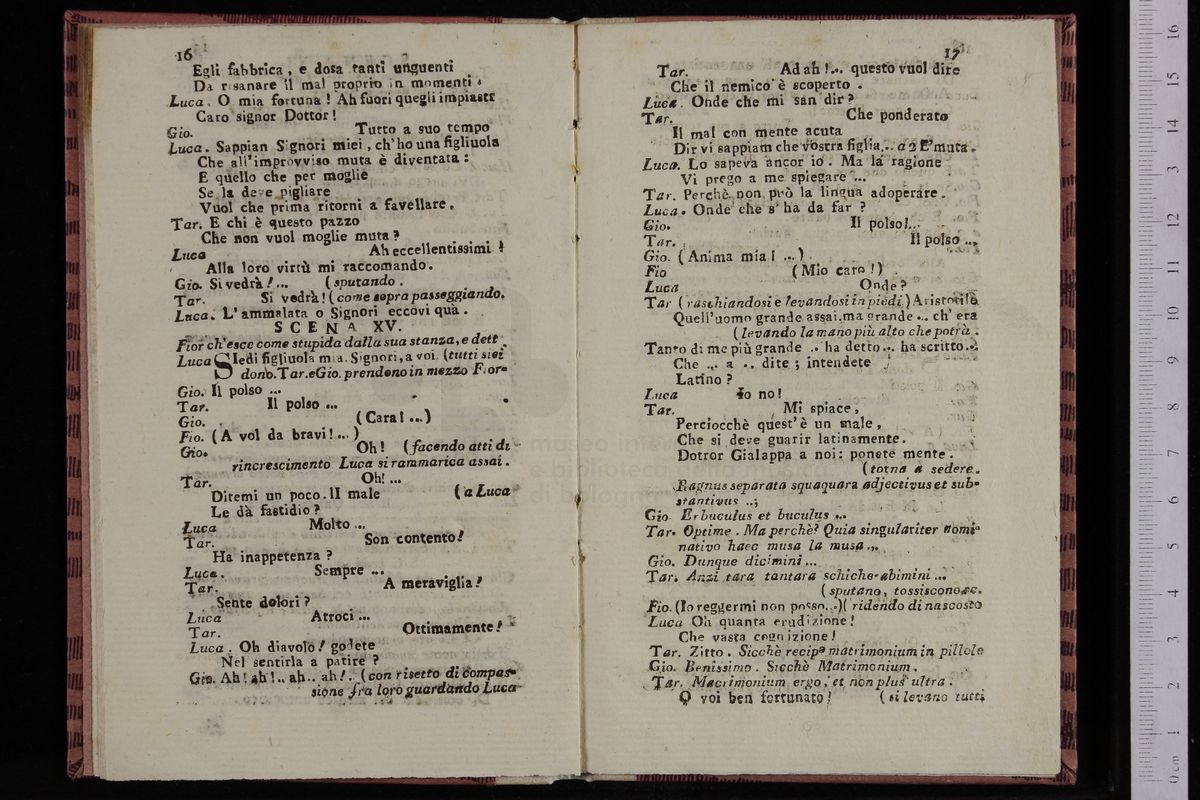 16
Egli fabbrica, e dosa tanti unguenti
Da risanare il mal proprio in momenti.
Luca. O mia fortuna! Ah fuori quegli impiastr
Caro signor Dottor!
Gio. Tutto a suo tempo
Luca. Sappian Signori miei, ch'ho una figliuola
Che all'improvviso muta è diventata:
E quello che per moglie
Se la deve pigliare
Vuol che prima ritorni a favellare.
Tar. E chi è questo pazzo
Che non vuol moglie muta?
Luca Ah eccellentissimi!
Alla loro virtù mi raccomando.
Gio. Si vedrà!... (sputando.
Tar. Si vedrà! (come sopra passeggiando.
Luca. L'ammalata o Signori eccovi quà.
SCENA XV.
Fior ch'esce come stupida dalla sua stanza, e dett.
Luca SIedi figliuola mia. Signori, a voi. (tutti siei
dono. Tar. e Gio. prendono in mezzo Fior=
Gio. Il polso ...
Tar. Il polso ...
Gio. (Cara! ...)
Fio. (A vol da bravi! ...)
Gio. Oh! (facendo atti di
rincrescimento Luca si rammarica assai.
Tar. Oh! ...
Ditemi un poco. Il male (a Luca
Le dà fastidio?
Luca Molto ...
Tar. Son contento!
Ha inappetenza?
Luca. Sempre ...
Tar. A meraviglia!
Sente dolori?
Luca Atroci ...
Tar. Ottimamente!
Luca. Oh diavolo! godete
Nel sentirla a patire?
Gio. Ah! ah!.. ah.. ah!. (con risetto di compas=
sione fra loro guardando Luca
17
Tar. Ad ah!... questo vuol dire
Che il nemico è scoperto.
Luca. Onde che mi san dir?
Tar. Che ponderato
Il mal con mente acuta
Dir vi sappiam che vostra figlia... a 2 E' muta.
Luca. Lo sapeva ancor io. Ma la ragione
Vi prego a me spiegare ...
Tar. Perchè non può la lingua adoperare.
Luca. Onde che s'ha da far?
Gio. Il polso!..
Tar. Il polso ...
Gio. (Anima mia! ...)
Fio (Mio caro!)
Luca Onde?
Tar (raschiandosi e levandosi in piedi.) Aristotile
Quell'uomo grande assai, ma grande ... ch'era
(levando la mano più alto che potrà.
Tanto di me più grande .. ha detto... ha scritto...
Che ... a .. dite; intendete
Latino?
Luca Io no!
Tar. Mi spiace,
Perciocchè quest'è un male,
Che si deve guarir latinamente.
Dotror Gialappa a noi: ponete mente.
(torna a sedere.
Ragnus separata squaquara adjectivus et sub=
stantivus ..;
Gio. Erbuculus et buculus ...
Tar. Optime. Ma perchè? Quia singulariter nomi=
nativo haec musa la musa ...
Gio. Dunque dicimini ...
Tar. Anzi tara tantara schiche-abimini ...
(sputano, tossiscono ec.
Fio. (Io reggermi non posso...) (ridendo di nascosto
Luca Oh quanta erudizione!
Che vasta cognizione!
Tar. Zitto. Sicchè recipe matrimonium in pillole
Gio. Benissimo. Sicchè Matrimonium.
Tar. Macrimonium ergo, et non plus ultra.
O voi ben fortunato! (si levano tutti